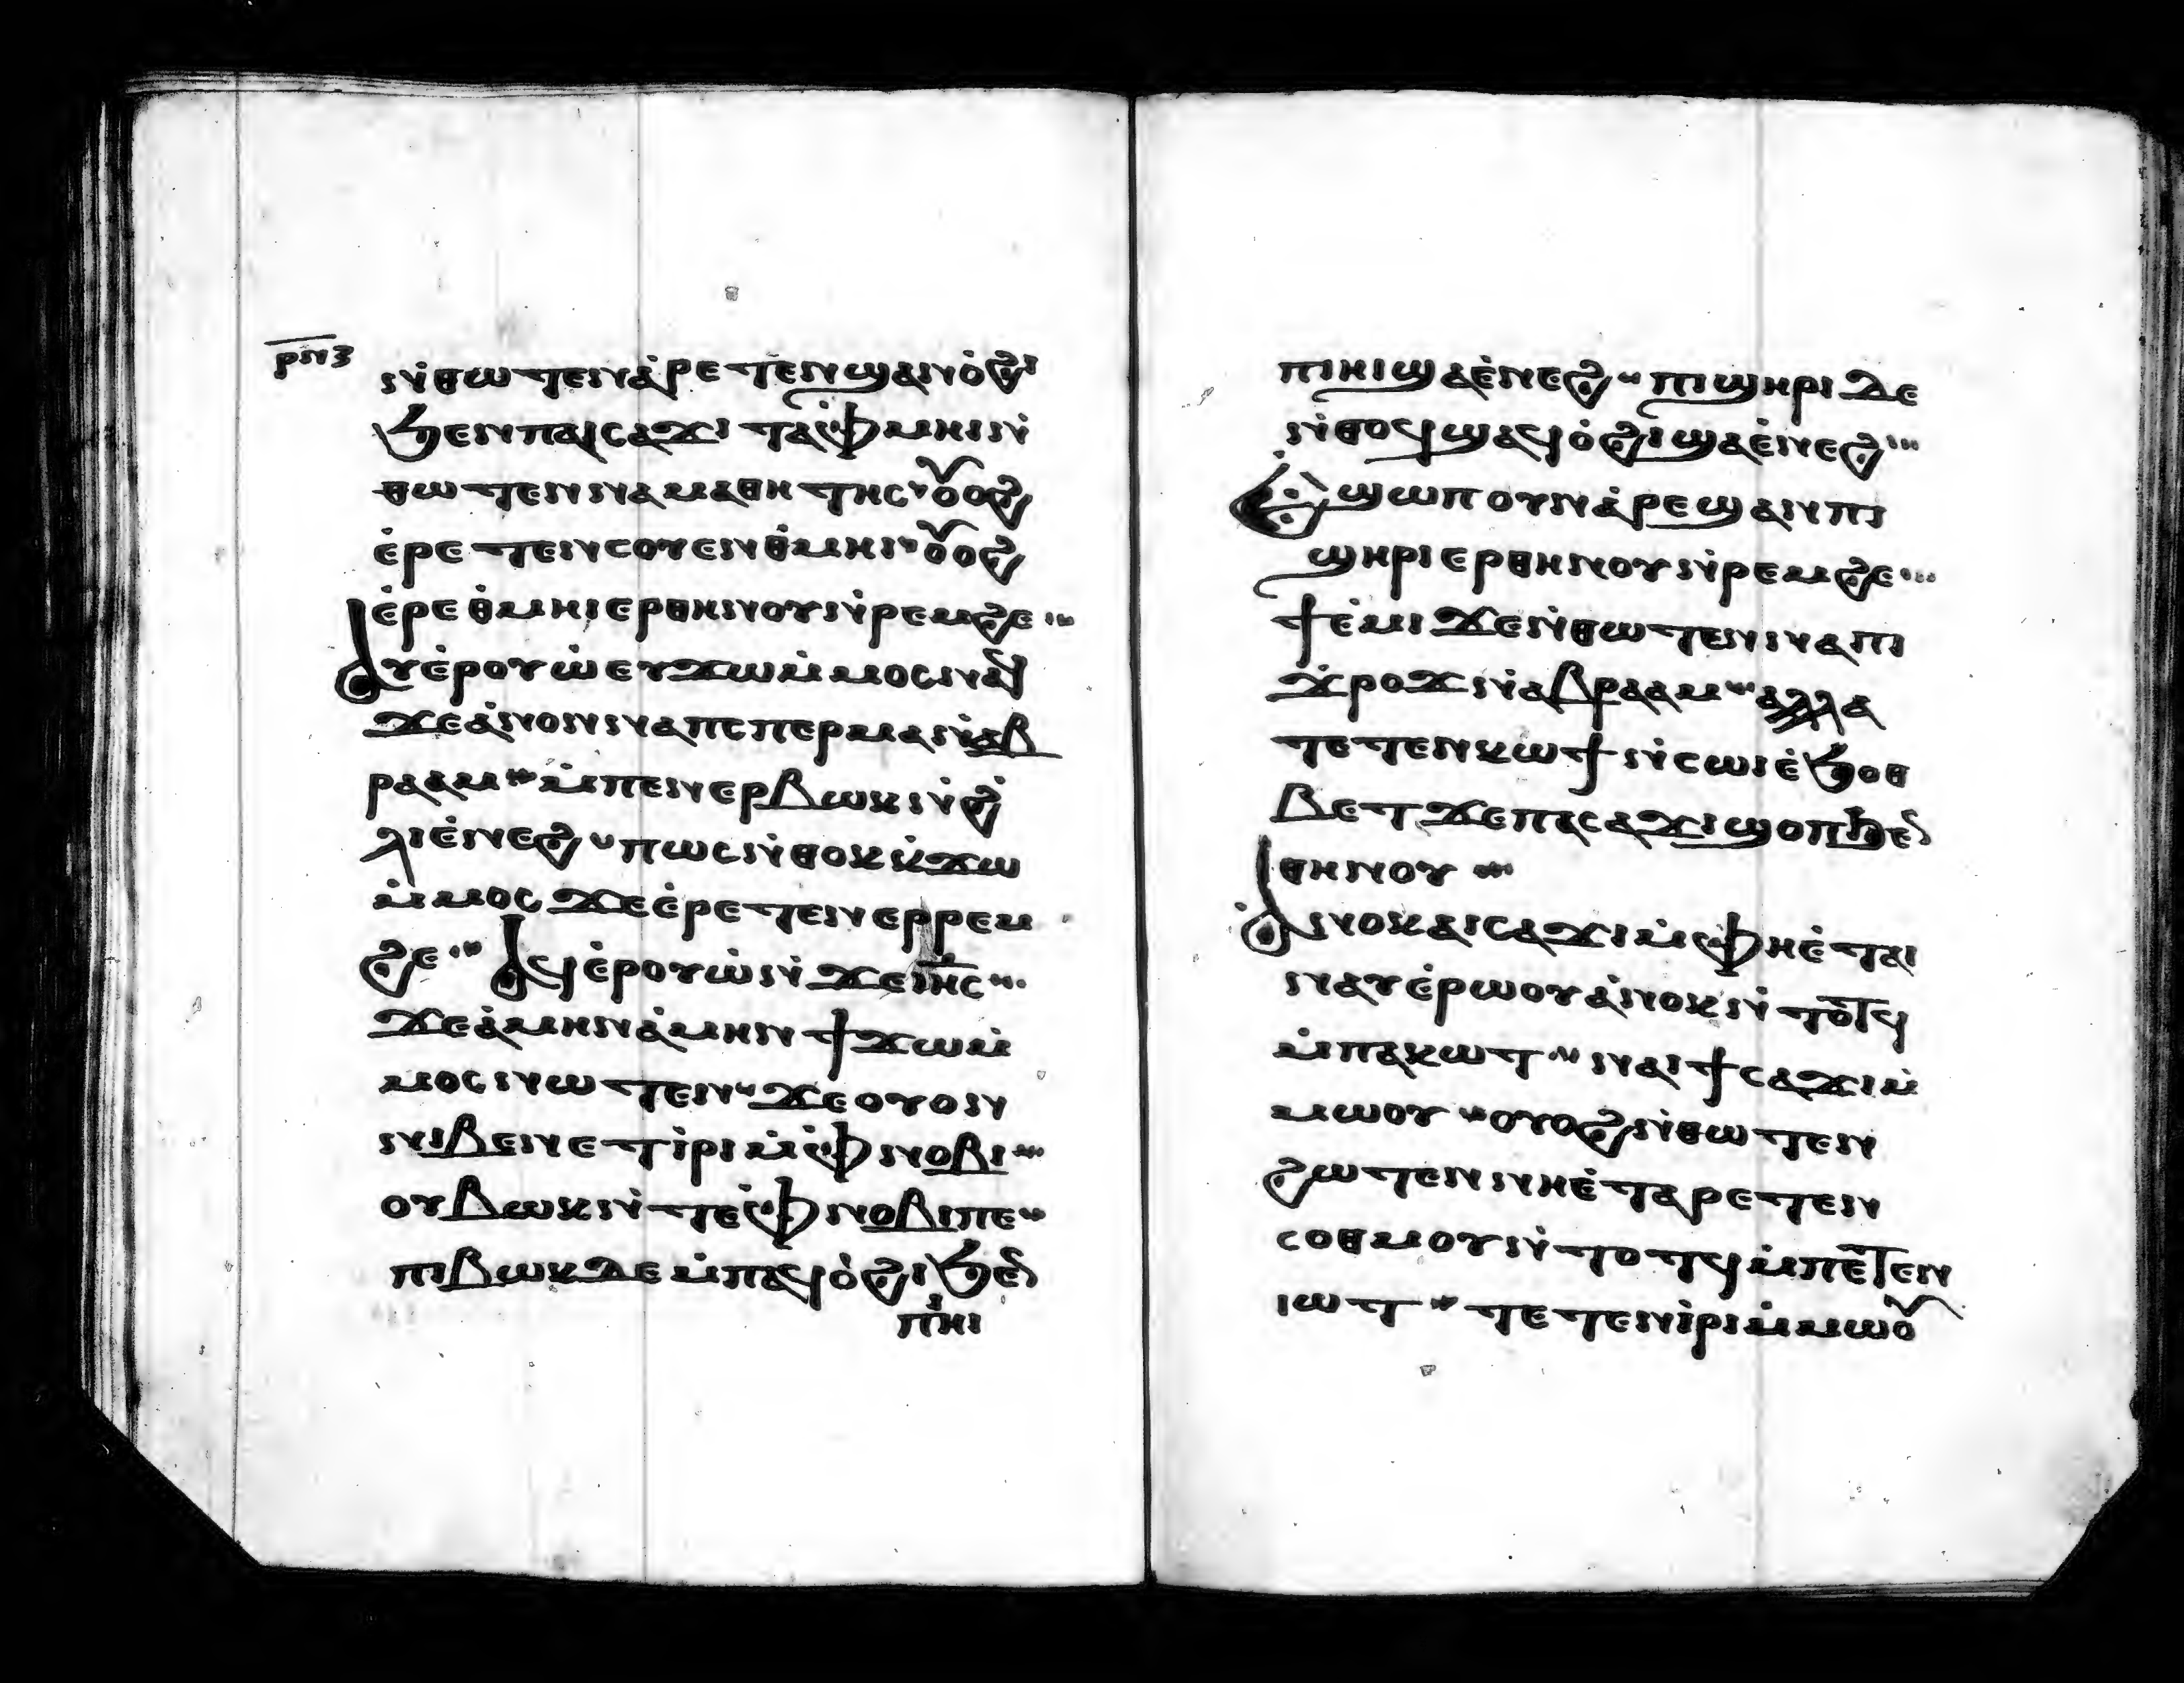 ⲣⲛⲍ
ⲛ̇ⲑⲱⲧⲉⲛ ⲁ̇ⲣⲉⲧⲉⲛϣⲁⲛⲟ̇ϩⲓ
ϧⲉⲛ ⲡⲁⲓⲥⲁϫⲓ ⲧⲁⲫ̇ⲙⲏⲓ ⲛ̇
ⲑⲱⲧⲉⲛ ⲛⲁⲙⲁⲑⲏⲧⲏⲥ ⲟⲩⲟϩ
ⲉ̇ⲣⲉⲧⲉⲛⲥⲟⲩⲉⲛ ⲑ̇ⲙⲏⲓ ⲟⲩⲟϩ
ⲉ̇ⲣⲉ ⲑ̇ⲙⲏⲓ ⲉⲣⲑⲏⲛⲟⲩ ⲛ̇ⲣⲉⲙϩⲉ
ⲁⲩⲉ̇ⲣⲟⲩⲱ̇ ⲉⲩϫⲱ ⲙ̇ⲙⲟⲥ ⲛⲁϥ
ϫⲉ ⲁ̇ⲛⲟⲛ ⲛⲁ ⲡⲥⲡⲉⲣⲙⲁ ⲛ̇ⲁⲃ
ⲣⲁⲁⲙ ⲙ̇ⲡⲉⲛⲉⲣⲃⲱⲕ ⲛ̇ϩ̇
ⲗⲓ ⲉ̇ⲛⲉϩ ⲡⲱⲥ ⲛ̇ⲑⲟⲕ ⲕ̇ϫⲱ
ⲙ̇ⲙⲟⲥ ϫⲉ ⲉ̇ⲣⲉⲧⲉⲛⲉⲣⲣⲉⲙ
ϩⲉ ⲁϥⲉ̇ⲣⲟⲩⲱ̇ ⲛ̇ϫⲉ ⲓⲏ̅ⲥ̅
ϫⲉ ⲁ̇ⲙⲏⲛ ⲁ̇ⲙⲏⲛ ϯϫⲱ ⲙ̇
ⲙⲟⲥ ⲛⲱⲧⲉⲛ ϫⲉ ⲟⲩⲟⲛ
ⲛⲓⲃⲉⲛ ⲉⲧⲓ̇ⲣⲓ ⲙ̇ⲫ̇ⲛⲟⲃⲓ
ⲟⲩⲃⲱⲕ ⲛ̇ⲧⲉ ⲫ̇ⲛⲟⲃⲓ ⲡⲉ
ⲡⲓⲃⲱⲕ ⲇⲉ ⲙ̇ⲡⲁϥⲟ̇ϩⲓ ϧⲉⲛ
ⲡⲓⲏⲓ
ⲡⲓⲏⲓ ϣⲁ ⲉ̇ⲛⲉϩ ⲡⲓϣⲏⲣⲓ ⲇⲉ
ⲛ̇ⲑⲟϥ ϣⲁϥⲟ̇ϩⲓ ϣⲁ ⲉ̇ⲛⲉϩ
ⲉ̇ϣⲱⲡ ⲟⲩⲛ ⲁ̇ⲣⲉϣⲁⲛ ⲡⲓ
ϣⲏⲣⲓ ⲉⲣⲑⲏⲛⲟⲩ ⲛ̇ⲣⲉⲙϩⲉ
ϯⲉ̇ⲙⲓ ϫⲉ ⲛ̇ⲑⲱⲧⲉⲛ ⲛⲁ ⲡⲓ
ϫ̇ⲣⲟϫ ⲛ̇ⲁⲃⲣⲁⲁⲙ ⲁⲗⲗⲁ
ⲧⲉⲧⲉⲛⲕⲱϯ ⲛ̇ⲥⲱⲓ ⲉ̇ϧⲟⲑ
ⲃⲉⲧ ϫⲉ ⲡⲁⲥⲁϫⲓ ϣⲟⲡ ϧⲉⲛ
ⲑⲏⲛⲟⲩ
ⲁ̇ⲛⲟⲕ ⲁⲓⲥⲁϫⲓ ⲙ̇ⲫⲏ ⲉ̇ⲧⲁⲓ
ⲛⲁⲩ ⲉ̇ⲣⲱⲟⲩ ⲁ̇ⲛⲟⲕ ⲛ̇ⲧⲟⲧϥ
ⲙ̇ⲡⲁⲓⲱⲧ ⲛⲁⲓ ϯⲥⲁϫⲓ ⲙ̇
ⲙⲱⲟⲩ ⲟⲩⲟϩ ⲛ̇ⲑⲱⲧⲉⲛ
ϩⲱⲧⲉⲛ ⲛⲏ ⲉ̇ⲧⲁⲣⲉⲧⲉⲛ
ⲥⲟⲑⲙⲟⲩ ⲛ̇ⲧⲟⲧϥ ⲙ̇ⲡⲉⲧⲉⲛ
ⲓⲱⲧ ⲧⲉⲧⲉⲛⲓ̇ⲣⲓ ⲙ̇ⲙⲱⲟⲩ